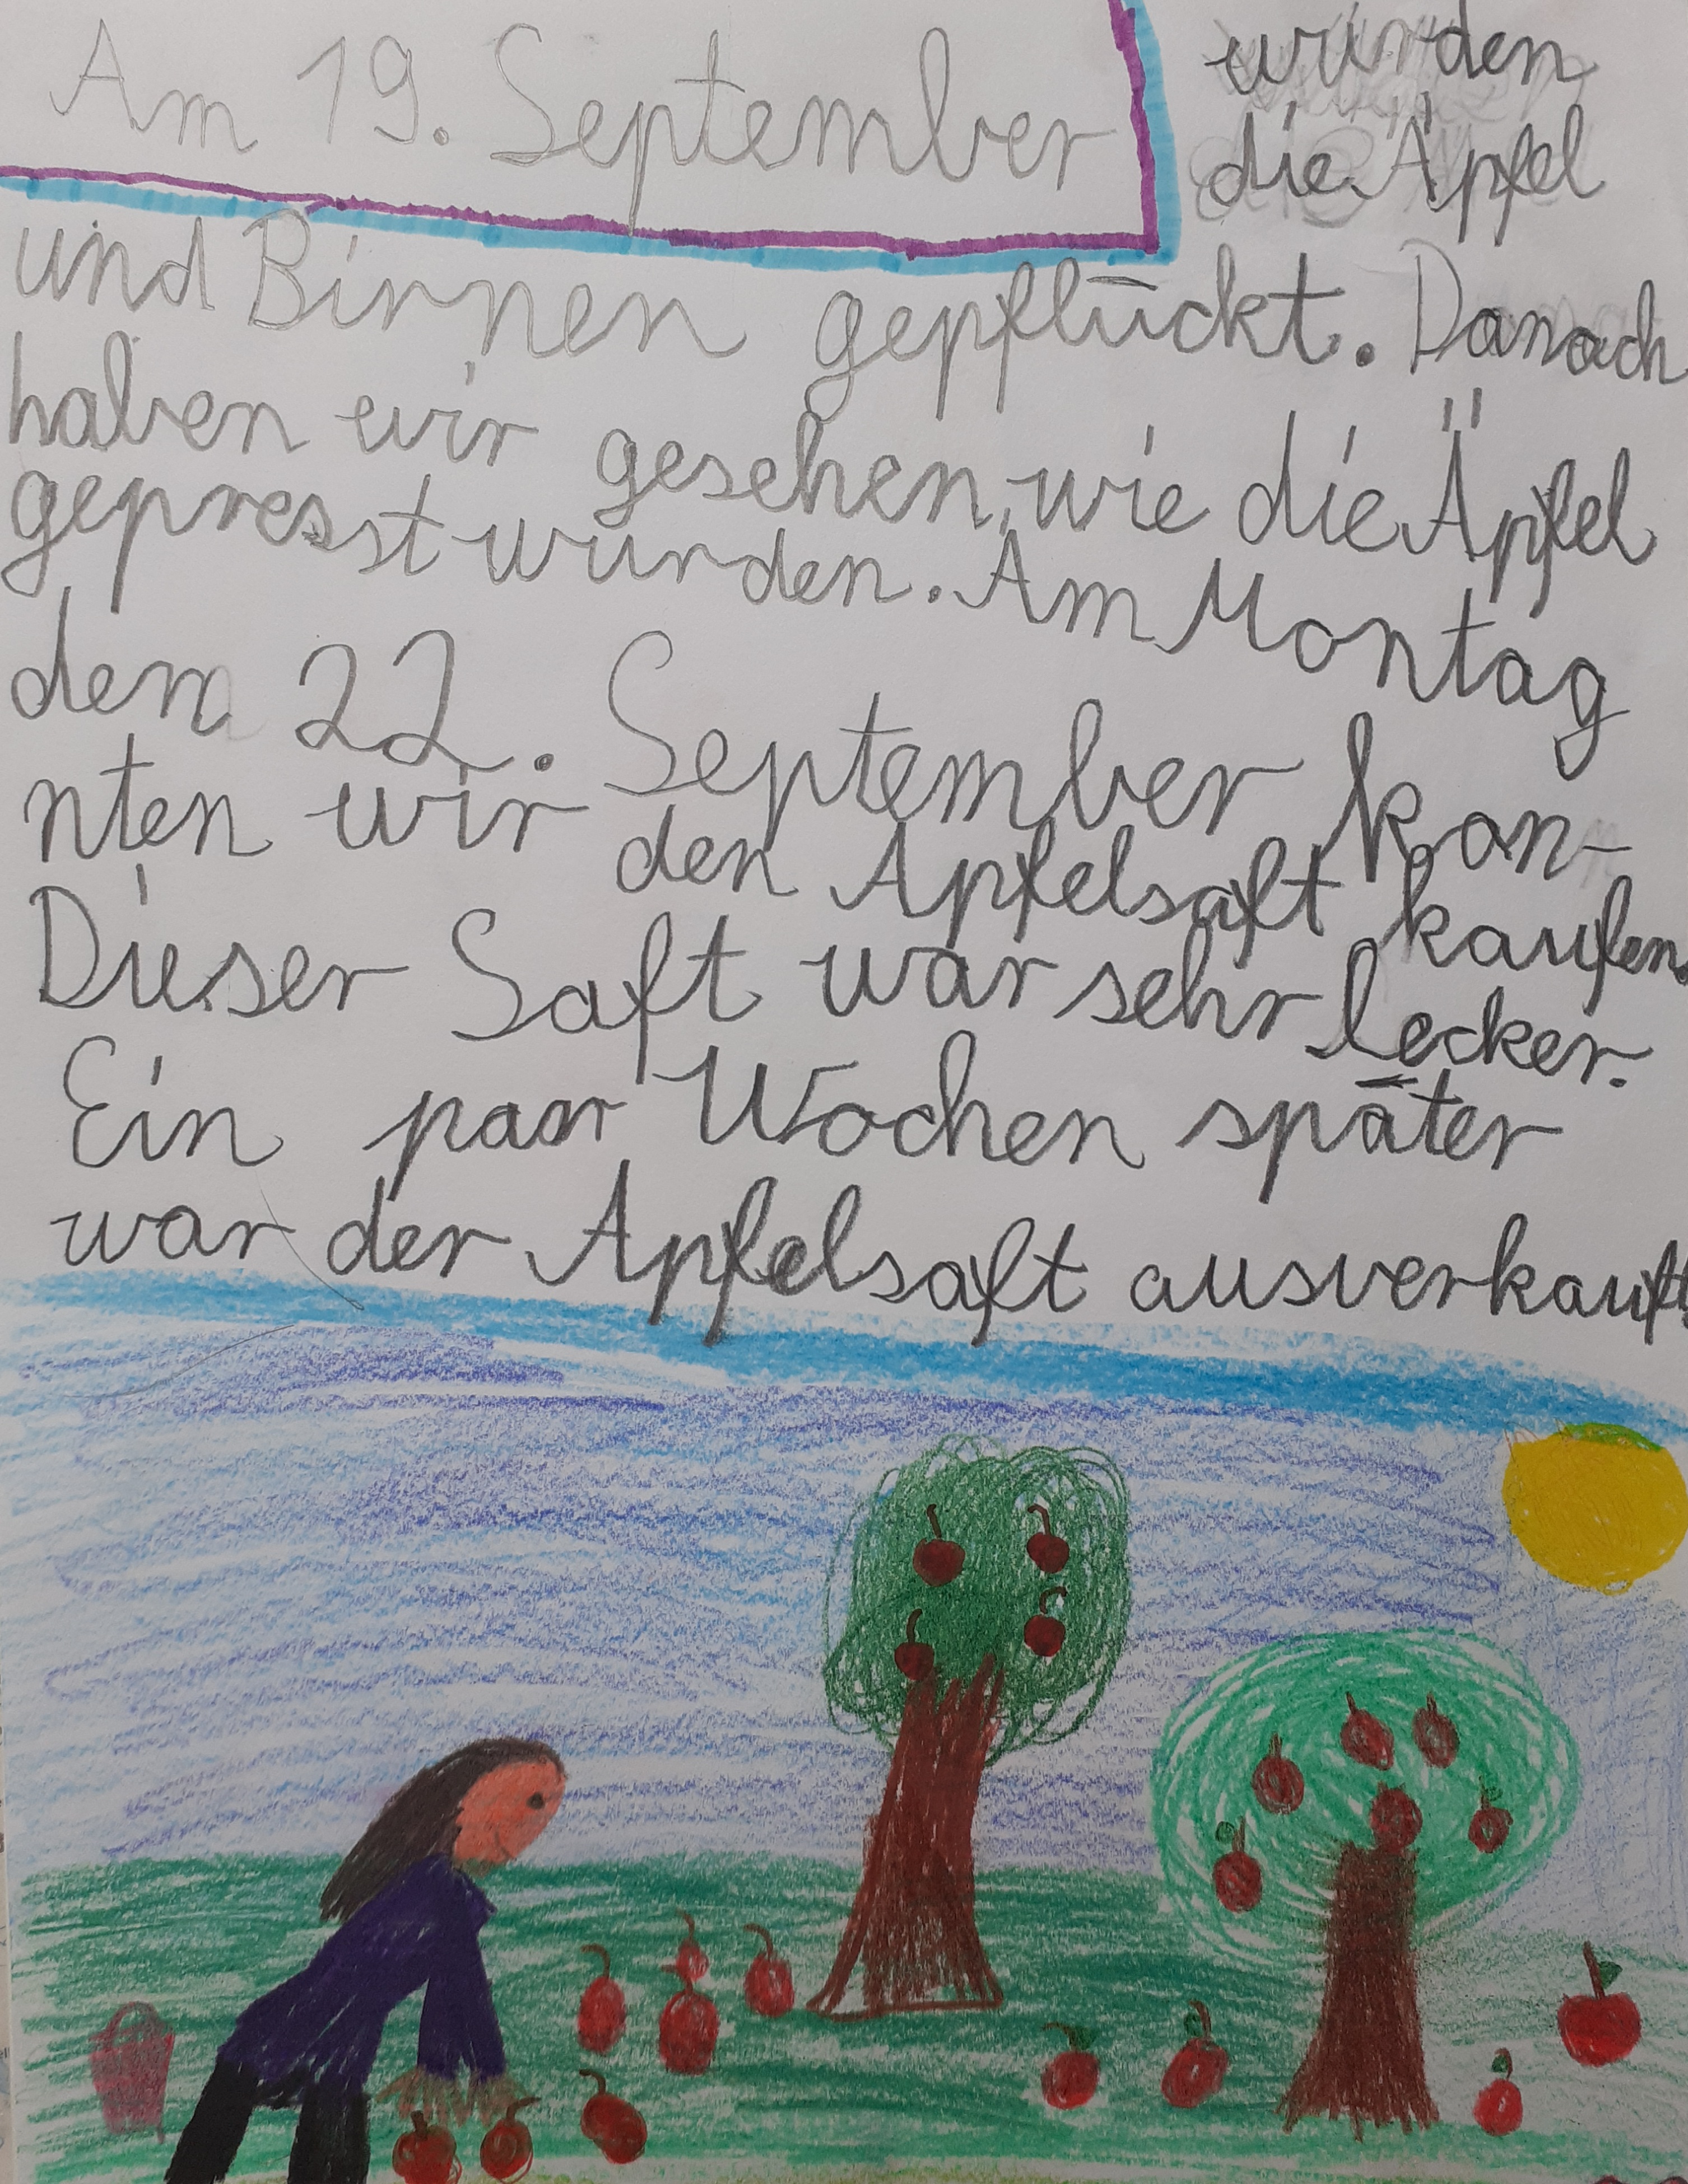 Am 19. September wurden
die Äpfel
und Birnen gepflückt. Danach
haben wir gesehen, wie die Äpfel
gepresst wurden. Am Montag
dem 22. September kon-
nten wir den Apfelsaft kaufen.
Dieser Saft war sehr lecker.
Ein paar Wochen später
war der Apfelsaft ausverkauft.